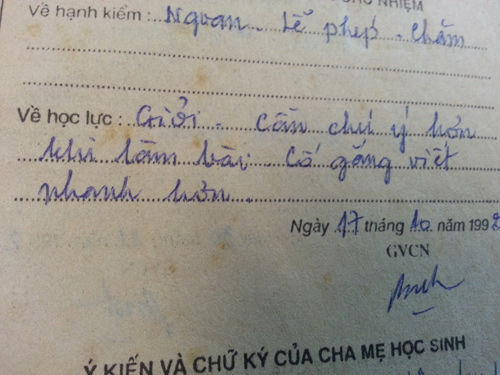 NHIỆM
Về hạnh kiểm : Ngoan. Lễ phép. Chăm
Về học lực : Giỏi. Cần chú ý hơn
khi làm bài. Cố gắng viết
nhanh hơn.
Ngày 17 tháng 10 năm 199
GVCN
Ý KIẾN VÀ CHỮ KÝ CỦA CHA MẸ HỌC SINH